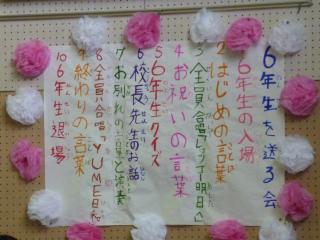 6年生を送る会
1 6年生の入場
2 はじめの言葉
3 全員合唱「レッツゴー明日へ」
4 お祝いの言葉
5 6年生クイズ
6 校長先生のお話
7 お別れの言葉と演奏
8 全員合唱「YUME日和」
9 終わりの言葉
10 6年生退場